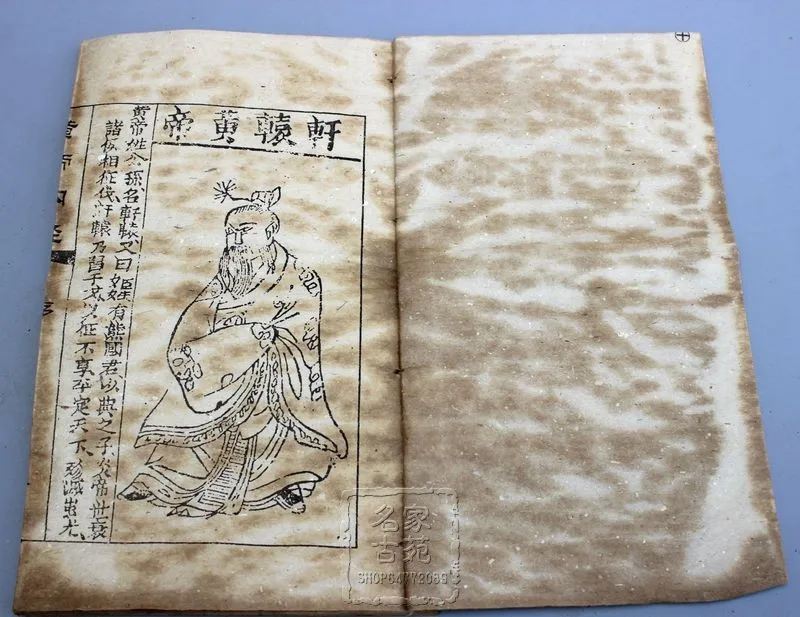 軒轅黃帝
黄帝姓公孫名軒轅又曰姬姓有熊國君少典之子炎帝世衰
諸侯相征伐軒轅乃習于戈以征不享平定天下殄滅蚩尤
黃帝內經
序
名家
古苑
SHOP64772089